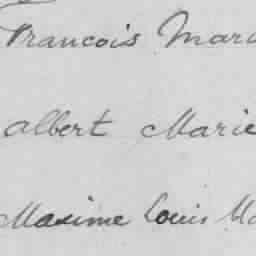 Francois Mari
albert Marie
Maxime Louis Ma